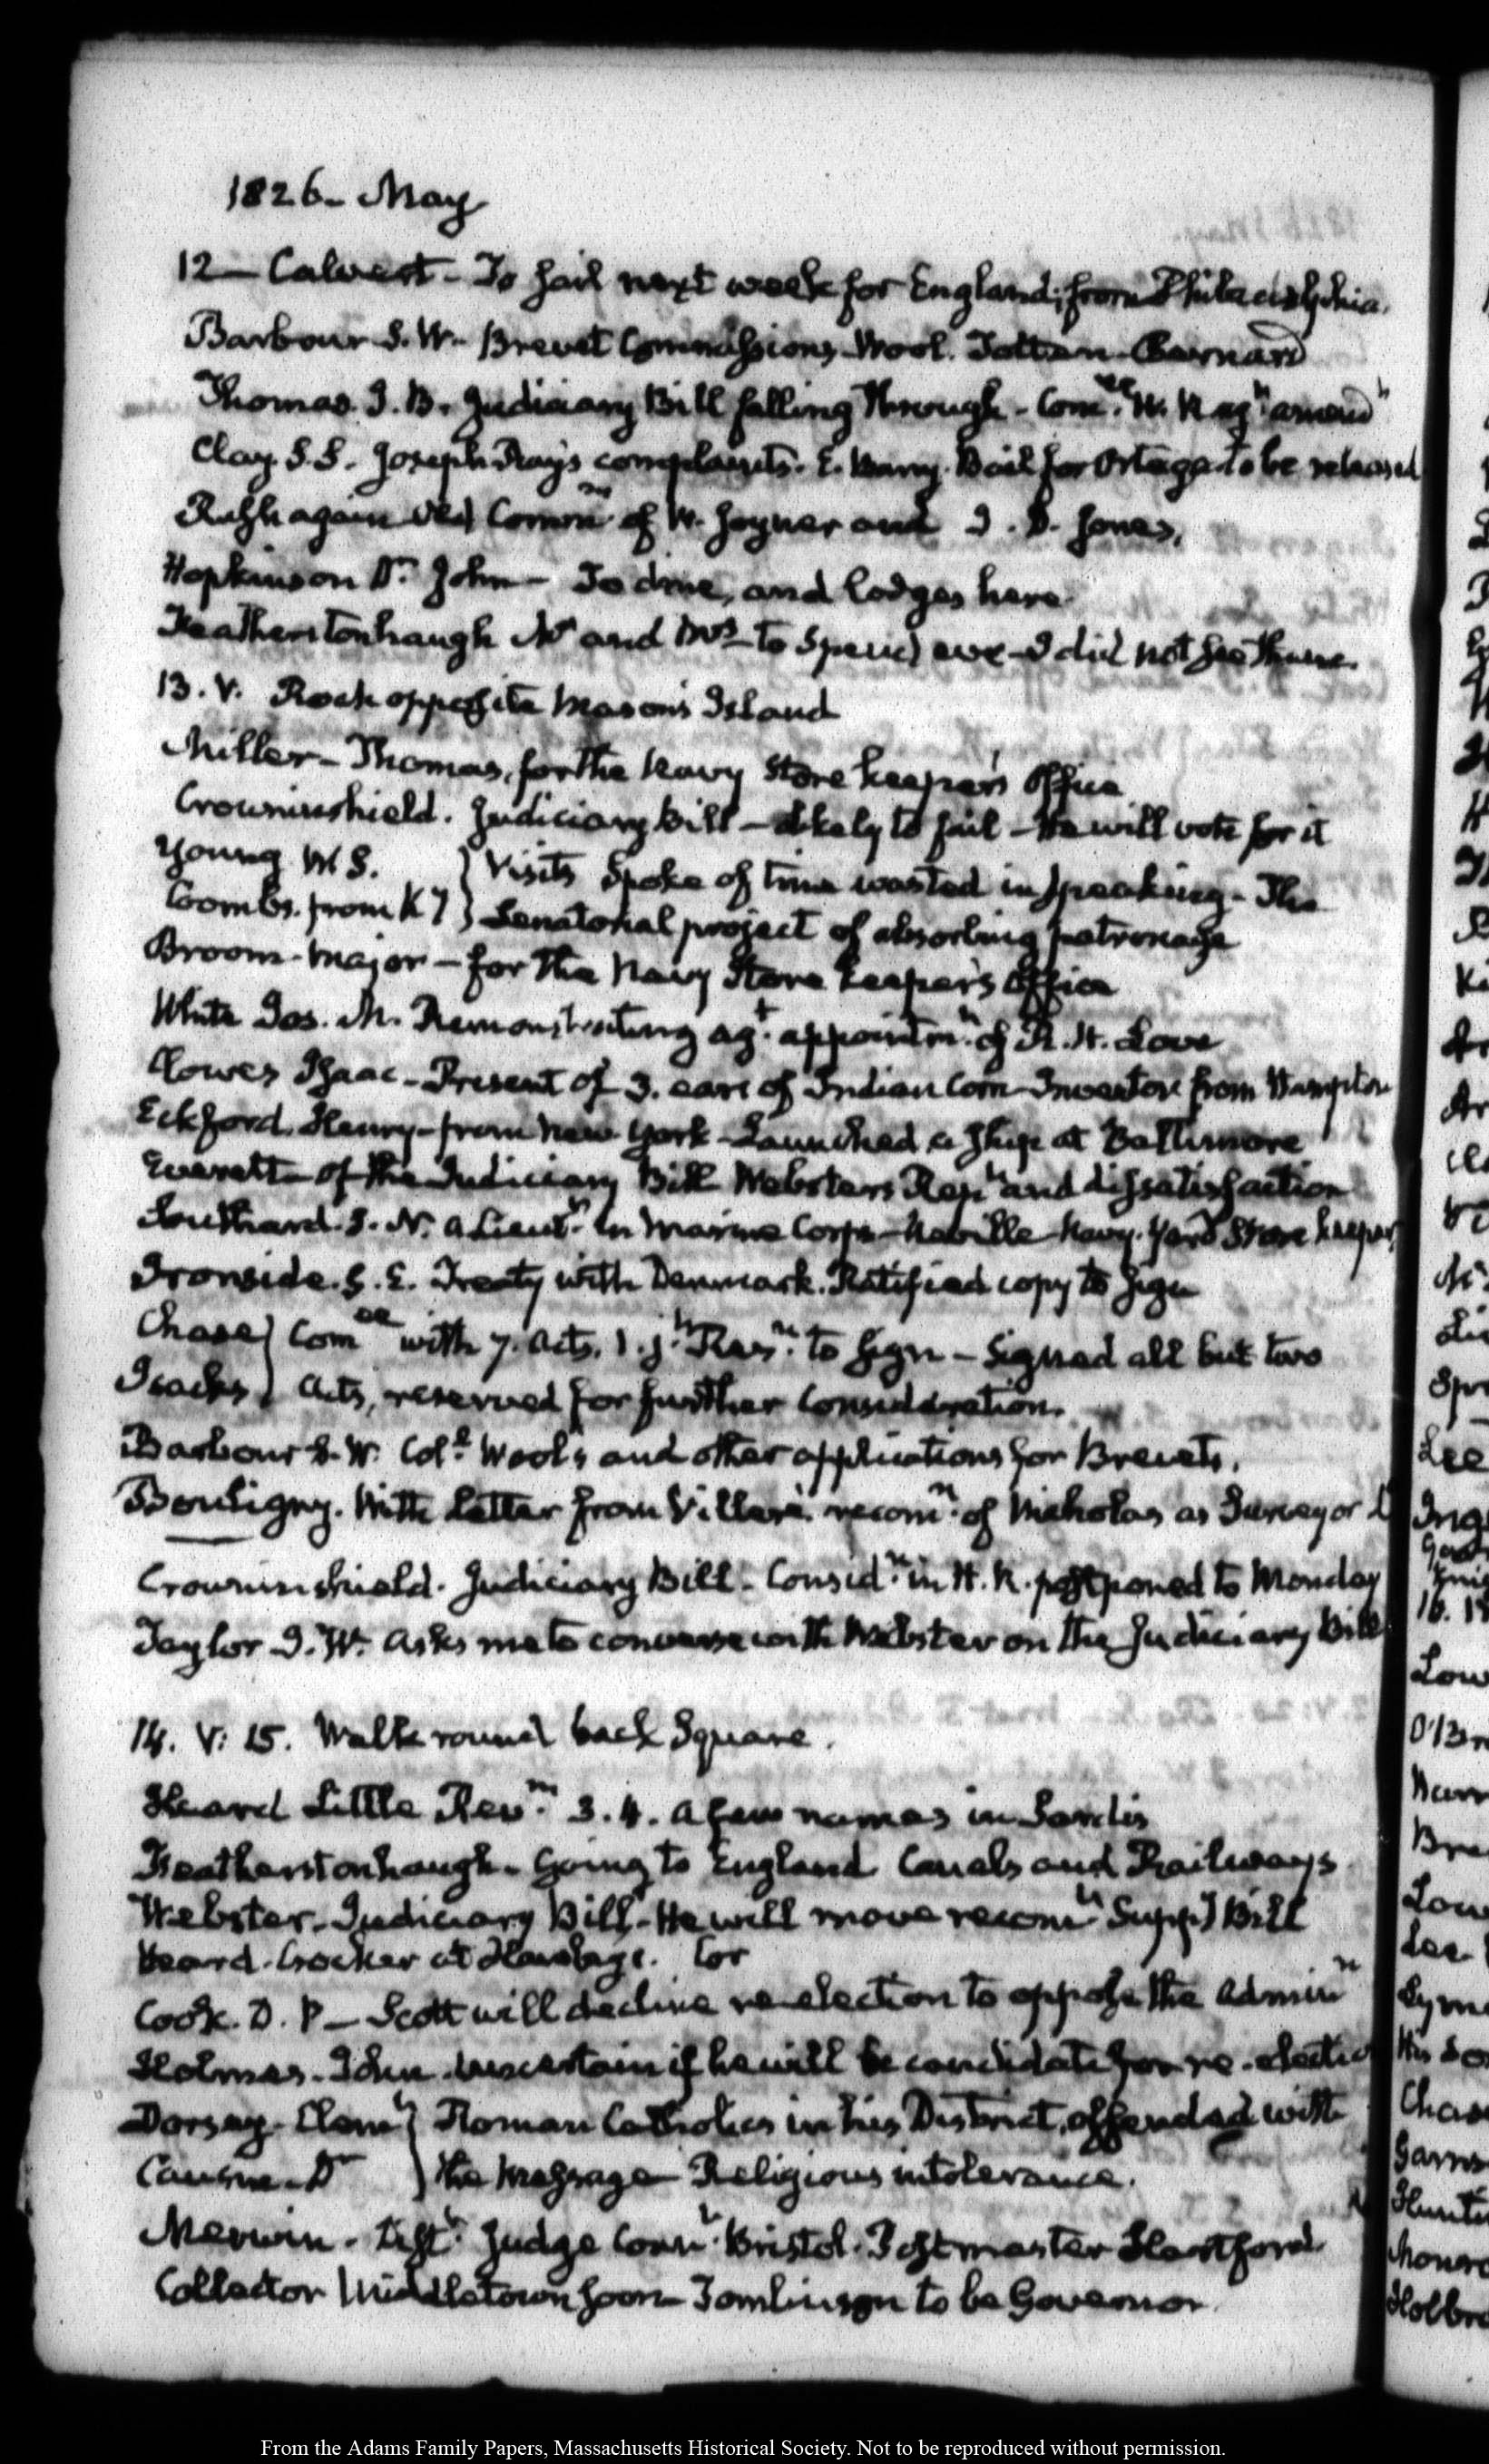 1826- May
12- Calvert- To sail next week for England; from Philadelphia.
Barbour S. W- Brevet Commissions Wool. Totten Bernard
Thomas. J. B. Judiciary Bill falling through- Comee. H. R agt amendt
Clay S.S. Joseph Ray's complaints. Bail for Ortega to be released
again Commn. of W. Joyner and J. D. Jones,
Hopkinson Dr. John- To dine, and lodges here
Featherstonhaugh Mr and Mrs- to spend eve-I did not see them.
13. V. Rock opposite Mason's Island
Miller- Thomas, for the Navy Store keeper's Office
Crowninshield. Judiciary bill- likely to fail- He will vote for it
Young W S. } Visits Spoke of time wasted in speaking- The
Coombs. from Ky } Senatorial project of absorbing patronage
Broom- Major- for the Navy Store keeper's Office
White Jos. M. Remonstrating agt. appointmt. of R. H. Love
Clowes Isaac- Present of 3. ears of Indian Corn- Investor from Hampton
Eckford. Henry- from New York- Launched a Ship at Baltimore
Everett- of the Judiciary Bill Websters and dissatisfaction
Southard. S. N. a Lieutt. in Marine Corps- Neville Navy. Yard Store keeper
Ironside. G. E. Treaty with Denmark. Ratified copy to sign
Chase } Comee with 7. Acts. 1. jt. Resn. to sign- Signed all but two
Isacks } Acts, reserved for further Consideration.
Barbour S. W. Coll. Wool's and other applications for Brevets.
Bouligny. With letter from Villeré recomn. of Nicholas as Surveyor
Crowninshield. Judiciary Bill- Considn. in H. R. postponed to Monday
Taylor J. W. asks me to converse with Webster on the Judiciary Bill
14. V: 15. Walk round back Square.
Heard Little Revn. 3. 4. a few names in Sardis
Featherstonhaugh- Going to England Canals and Railways
Webster- Judiciary Bill- He will move Bill
Heard
Cook. D. P- Scott will decline re-election to oppose the Adminn
Holmes- John. Uncertain if he will be candidate for re-election
Dorsey- Clemt } Roman Catholics in his District, offended with
Causin- Dr } the Message Religious intolerance.
Merwin. Distt. Judge Connt. Bristol. Postmaster Hartford
Collector Middletown soon- Tomlinson to be Governor.
From the Adams Family Papers, Massachusetts Historical Society. Not to be reproduced without permission.